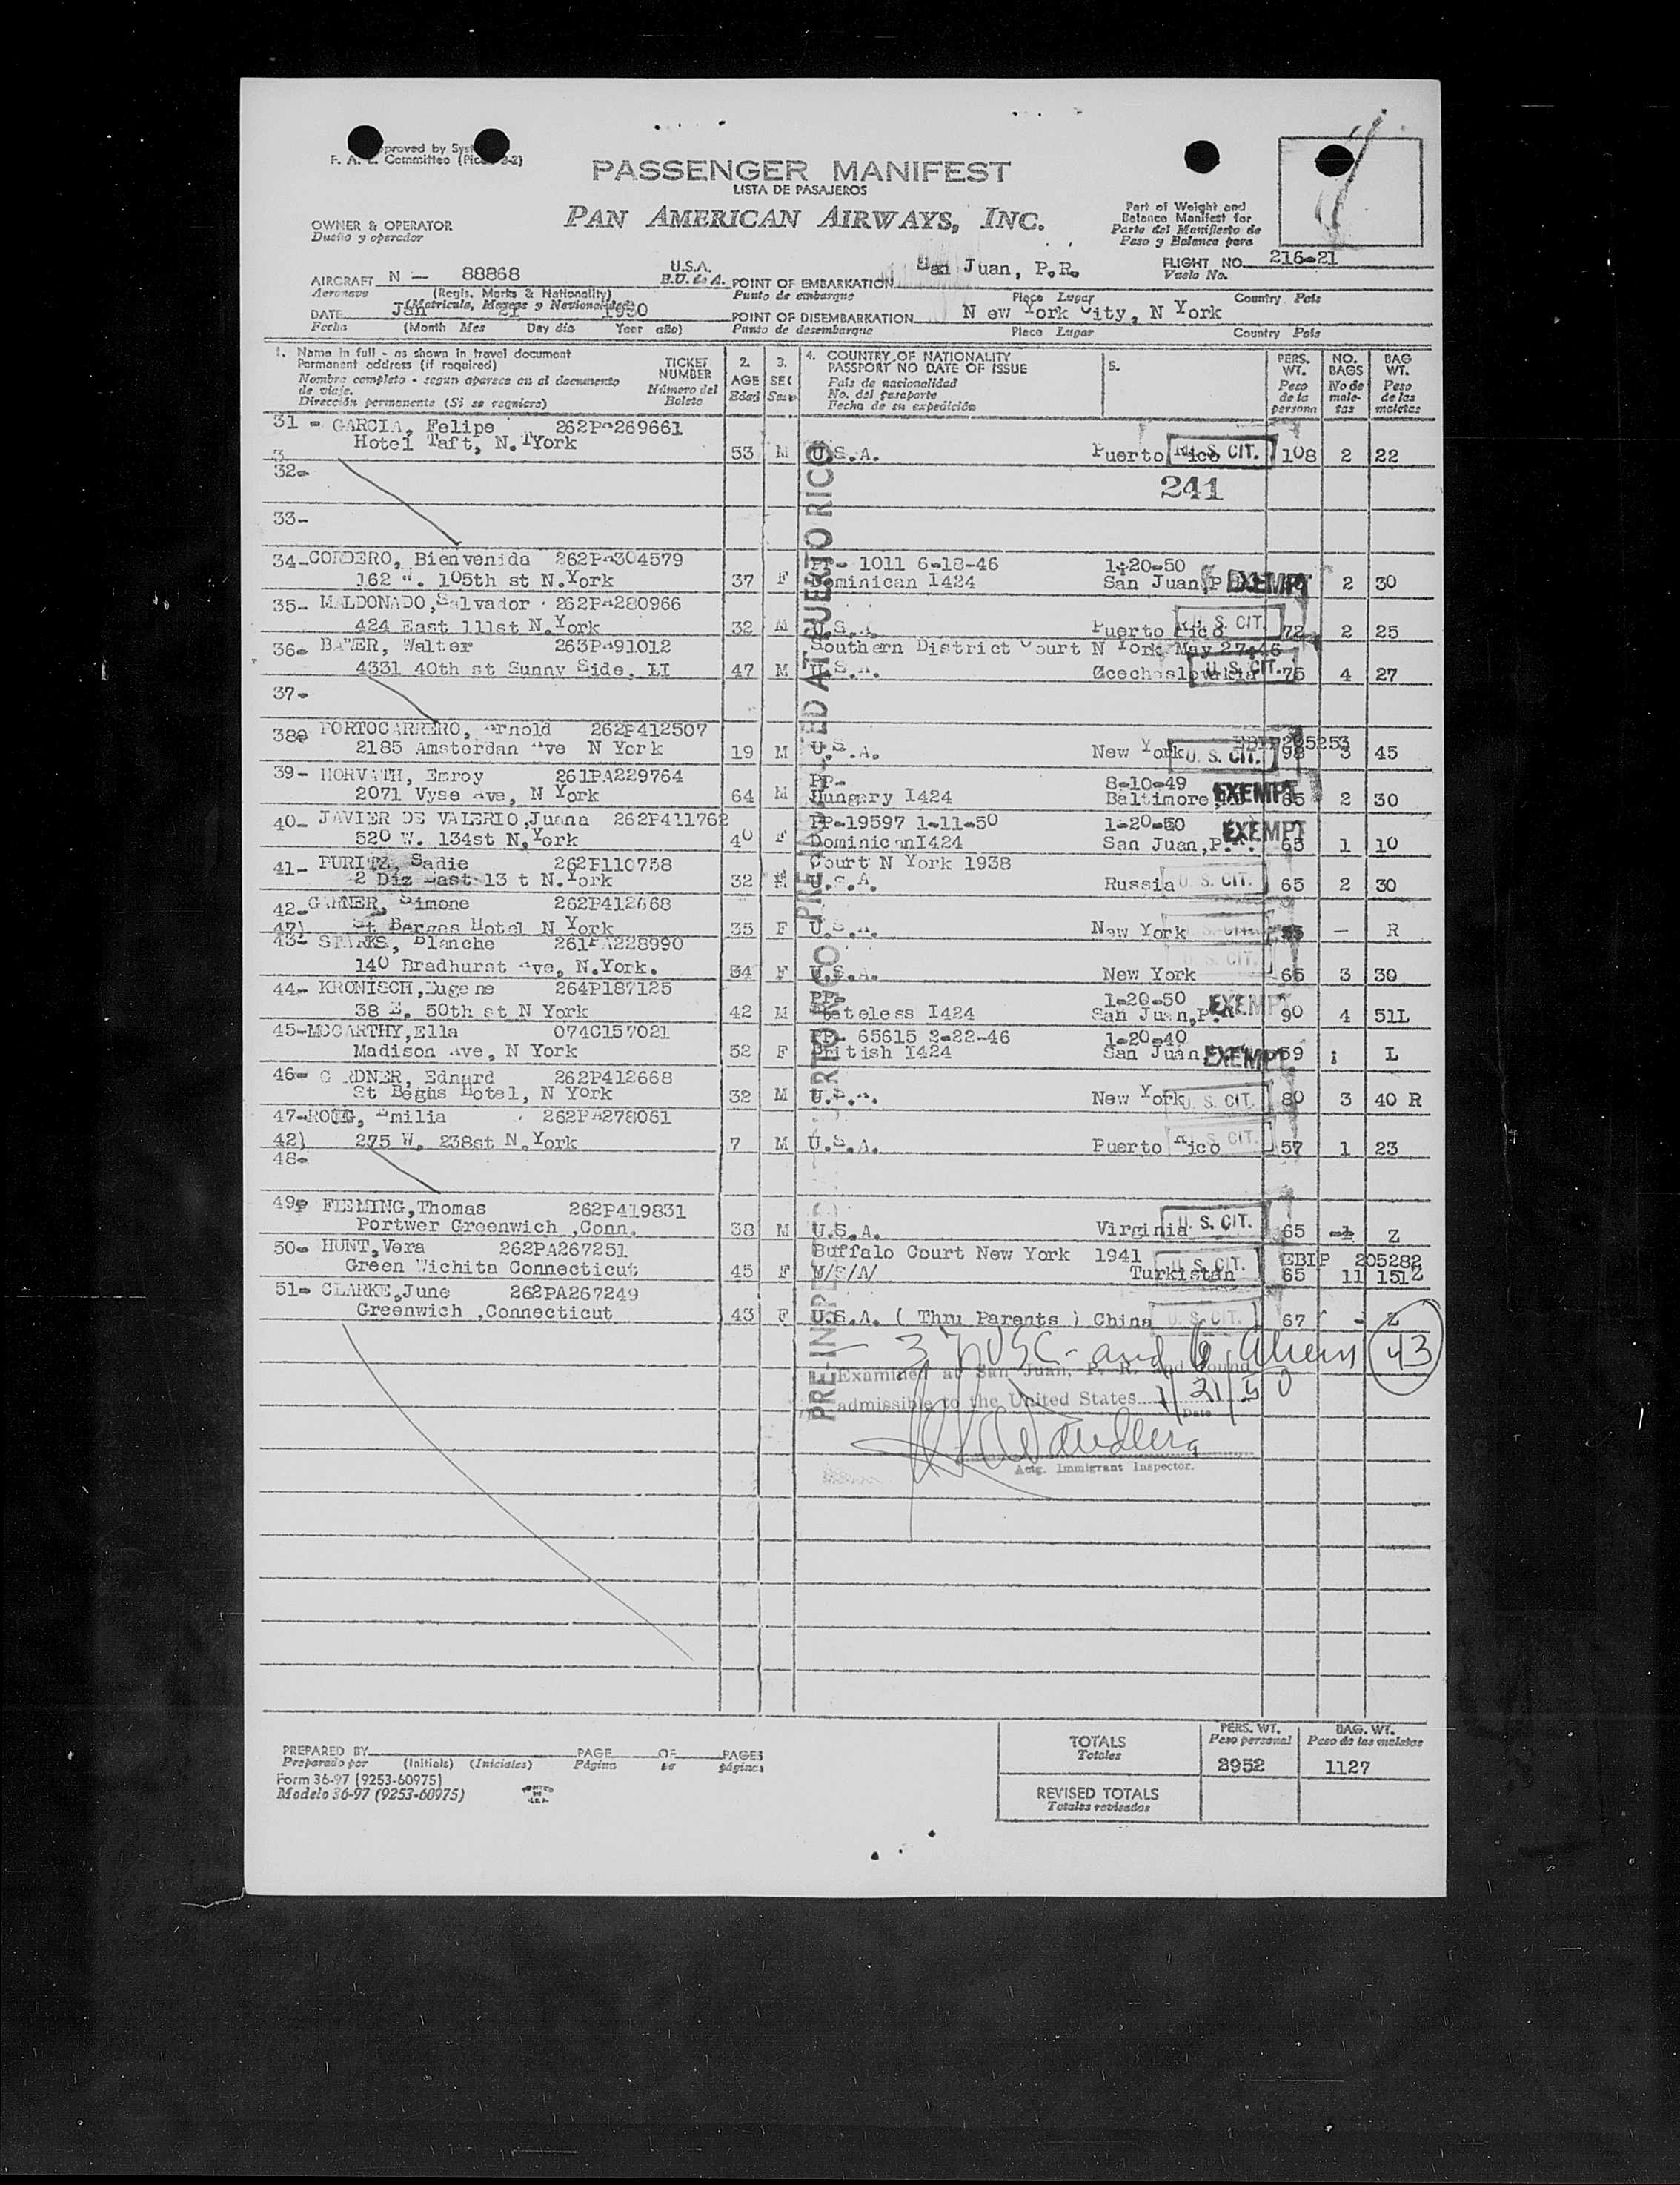 Approved by Syst
F. A. L. Committee (Pica 3-2)
PASSENGER MANIFEST
LISTA DE PASAJEROS
PAN AMERICAN AIRWAYS, INC.
OWNER & OPERATOR
Dueño y operador
Part of Weight and
Balance Manifest for
Parte del Manifiesto de
Peso y Balance para
FLIGHT NO. 216-21
Vuelo No.
AIRCRAFT N - 88868 U.S.A. POINT OF EMBARKATION San Juan, P.R.
Aeronave (Regis. Marks & Nationality) E.U. de A. Punto de embarque Place Lugar Country País
(Matricula, Marcas y Nacionalidad)
DATE Jan 21 1950 POINT OF DISEMBARKATION N ew York City, N York
Fecha (Month Mes Day día Year año) Punto de desembarque Place Lugar Country País
1. Name in full - as shown in travel document
Permanent address (if required)
Nombre completo - segun aparece en el documento
de viaje.
Dirección permanente (Si se requiere)
TICKET
NUMBER
Número del
Boleto
2.
AGE
Edad
3.
SEX
Sexo
4. COUNTRY OF NATIONALITY
PASSPORT NO DATE OF ISSUE
País de nacionalidad
No. del pasaporte
Fecha de su expedición
5.
PERS.
WT.
Peso
de la
persona
NO.
BAGS
No de
male-
tas
BAG
WT.
Peso
de las
maletas
31 - GARCIA, Felipe 262PA269661
Hotel Taft, N. York 53 M U.S.A. Puerto Rico U. S. CIT. 108 2 22
32-
241
33-
34-CORDERO, Bienvenida 262PA304579 PP- 1011 6-18-46 1-20-50
162 W. 105th st N.York 37 F Dominican I424 San Juan,P EXEMPT 2 30
35- MALDONADO,Salvador 262PA280966
424 East 111st N.York 32 M U.S.A Puerto Rico U. S. CIT. 72 2 25
36- BAUER, Walter 263PA91012 Southern District Court N York May 27-46
4331 40th st Sunny Side, LI 47 M U.S.A. Czechoslovakia U. S. CIT. 75 4 27
37-
38- PORTOCARRERO, Arnold 262P412507 EBIP 205253
2185 Amsterdan Ave N York 19 M U.S.A. New York U. S. CIT. 98 3 45
39- HORVATH, Emroy 261PA229764 PP- 8-10-49
2071 Vyse Ave, N York 64 M Hungary I424 Baltimore, EXEMPT 85 2 30
40- JAVIER DE VALERIO,Juana 262P411762 PP-19597 1-11-50 1-20-50
520 W. 134st N,York 40 F DominicanI424 San Juan,P.R. EXEMPT 65 1 10
41- PURITZ, Sadie 262P110758 Court N York 1938
2 Diz East 13 t N.York 32 U.S.A. Russia U. S. CIT. 65 2 30
42-GARNER, Simone 262P412668
47) St Bergas Hotel N York 35 F U.S.A. New York U. S. CIT. — R
43- STARKS, Blanche 261PA228990
140 Bradhurst Ave, N.York. 34 F U.S.A. New York S. CIT. 65 3 30
44- KRONISCH,Eugene 264P187125 PP- 1-20-50
38 E. 50th st N York 42 M Stateless I424 San Juan,P.R EXEMPT 90 4 51L
45-MCCARTHY,Ella 074C157021 PP- 65615 2-22-46 1-20-40
Madison Ave, N York 52 F British I424 San Juan, EXEMPT 59 L
46- GARDNER, Ednard 262P412668
St Beghs Hotel, N York 32 M U.S.A. New York U. S. CIT. 80 3 40 R
47-ROIG, Emilia 262PA278061
42) 275 W. 238st N.York 7 M U.S.A. Puerto Rico U. S. CIT. 57 1 23
48-
49- FLEMING,Thomas 262P419831
Portwer Greenwich ,Conn. 38 M U.S.A. Virginia U. S. CIT. 65 -1 Z
50- HUNT,Vera 262PA267251 Buffalo Court New York 1941 EBIP 205282
Green Wichita Connecticut 45 F U/S/A/ Turkistan U. S. CIT. 65 11 151Z
51- CLARKE,June 262PA267249
Greenwich ,Connecticut 43 F U.S.A. ( Thru Parents ) China U. S. CIT. 67 - Z
PRE-INSPECTED AT PUERTO RICO
- 37 USC - and 6 Aliens 43
Examined at San Juan, P. R. and found
admissible to the United States 1/21/50
Date
Actg. Immigrant Inspector.
PREPARED BY PAGE OF PAGES
Preparado por (Initials) (Iniciales) Página de páginas
Form 36-97 (9253-60975)
Modelo 36-97 (9253-60975)
PRINTED
IN
U.S.A.
TOTALS
Totales
PERS. WT.
Peso personal
3952
BAG. WT.
Peso de las maletas
1127
REVISED TOTALS
Totales revisados